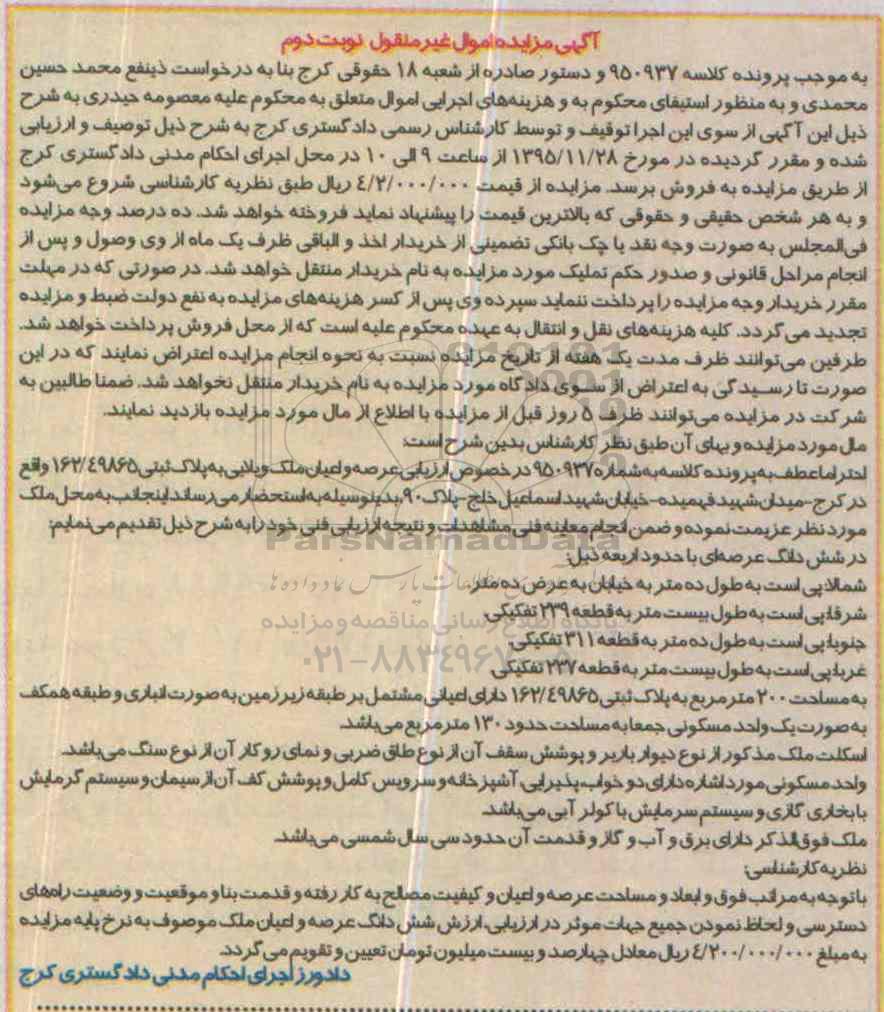 آگهی مزایده اموال غیر منقول نوبت دوم
به موجب پرونده کلاسه ۹۵۰۹۳۷ و دستور صادره از شعبه ۱۸ حقوقی کرج بنا به درخواست ذینفع محمد حسین
محمدی و به منظور استیفای محکوم به و هزینه‌های اجرایی اموال متعلق به محکوم علیه معصومه حیدری به شرح
ذیل این آگهی از سوی این اجرا توقیف و توسط کارشناس رسمی دادگستری کرج به شرح ذیل توصیف و ارزیابی
شده و مقرر گردیده در مورخ ۱۳۹۵/۱۱/۲۸ از ساعت ۹ الی ۱۰ در محل اجرای احکام مدنی دادگستری کرج
از طریق مزایده به فروش برسد. مزایده از قیمت ۴/۲/۰۰۰/۰۰۰ ریال طبق نظریه کارشناسی شروع می‌شود
و به هر شخص حقیقی و حقوقی که بالاترین قیمت را پیشنهاد نماید فروخته خواهد شد. ده درصد وجه مزایده
فی‌المجلس به صورت وجه نقد یا چک بانکی تضمینی از خریدار اخذ و الباقی ظرف یک ماه از وی وصول و پس از
انجام مراحل قانونی و صدور حکم تملیک مورد مزایده به نام خریدار منتقل خواهد شد. در صورتی که در مهلت
مقرر خریدار وجه مزایده را پرداخت ننماید سپرده وی پس از کسر هزینه‌های مزایده به نفع دولت ضبط و مزایده
تجدید می‌گردد. کلیه هزینه‌های نقل و انتقال به عهده محکوم علیه است که از محل فروش پرداخت خواهد شد.
طرفین می‌توانند ظرف مدت یک هفته از تاریخ مزایده نسبت به نحوه انجام مزایده اعتراض نمایند که در این
صورت تا رسیدگی به اعتراض از سوی دادگاه مورد مزایده به نام خریدار منتقل نخواهد شد. ضمنا طالبین به
شرکت در مزایده می‌توانند ظرف ۵ روز قبل از مزایده با اطلاع از مال مورد مزایده بازدید نمایند.
مال مورد مزایده و بهای آن طبق نظر کارشناس بدین شرح است:
احتراما عطف به پرونده کلاسه به شماره ۹۵۰۹۳۷ در خصوص ارزیابی عرصه و اعیان ملک ویلایی به پلاک ثبتی ۱۶۲/۴۹۸۶۵ واقع
در کرج-میدان شهید فهمیده-خیابان شهید اسماعیل خلج-پلاک ۹۰ بدینوسیله به استحضار می‌رساند اینجانب به محل ملک
مورد نظر عزیمت نموده و ضمن انجام معاینه فنی مشاهدات و نتیجه ارزیابی فنی خود را به شرح ذیل تقدیم می‌نمایم:
در شش دانگ عرصه‌ای با حدود اربعه ذیل:
شمالا پی است به طول ده متر به خیابان به عرض ده متر.
شرقا پی است به طول بیست متر به قطعه ۲۳۹ تفکیکی.
جنوبا پی است به طول ده متر به قطعه ۳۱۱ تفکیکی.
غربا پی است به طول بیست متر به قطعه ۲۳۷ تفکیکی.
به مساحت ۲۰۰ مترمربع به پلاک ثبتی ۱۶۲/۴۹۸۶۵ دارای اعیانی مشتمل بر طبقه زیرزمین به صورت انباری و طبقه همکف
به صورت یک واحد مسکونی جمعا به مساحت حدود ۱۳۰ مترمربع می‌باشد.
اسکلت ملک مذکور از نوع دیوار باربر و پوشش سقف آن از نوع طاق ضربی و نمای روکار آن از نوع سنگ می‌باشد.
واحد مسکونی مورد اشاره دارای دو خواب، پذیرایی، آشپزخانه و سرویس کامل و پوشش کف آن از سیمان و سیستم گرمایش
با بخاری گازی و سیستم سرمایش با کولر آبی می‌باشد.
ملک فوق‌الذکر دارای برق و آب و گاز و قدمت آن حدود سی سال شمسی می‌باشد.
نظریه کارشناسی:
با توجه به مراتب فوق و ابعاد و مساحت عرصه و اعیان و کیفیت مصالح به کار رفته و قدمت بنا و موقعیت و وضعیت راه‌های
دسترسی و لحاظ نمودن جمیع جهات موثر در ارزیابی، ارزش شش دانگ عرصه و اعیان ملک موصوف به نرخ پایه مزایده
به مبلغ ۴/۲۰۰/۰۰۰/۰۰۰ ریال معادل چهارصد و بیست میلیون تومان تعیین و تقویم می‌گردد.
دادورز اجرای احکام مدنی دادگستری کرج
ParsNamadData
پایگاه اطلاع رسانی مناقصه و مزایده